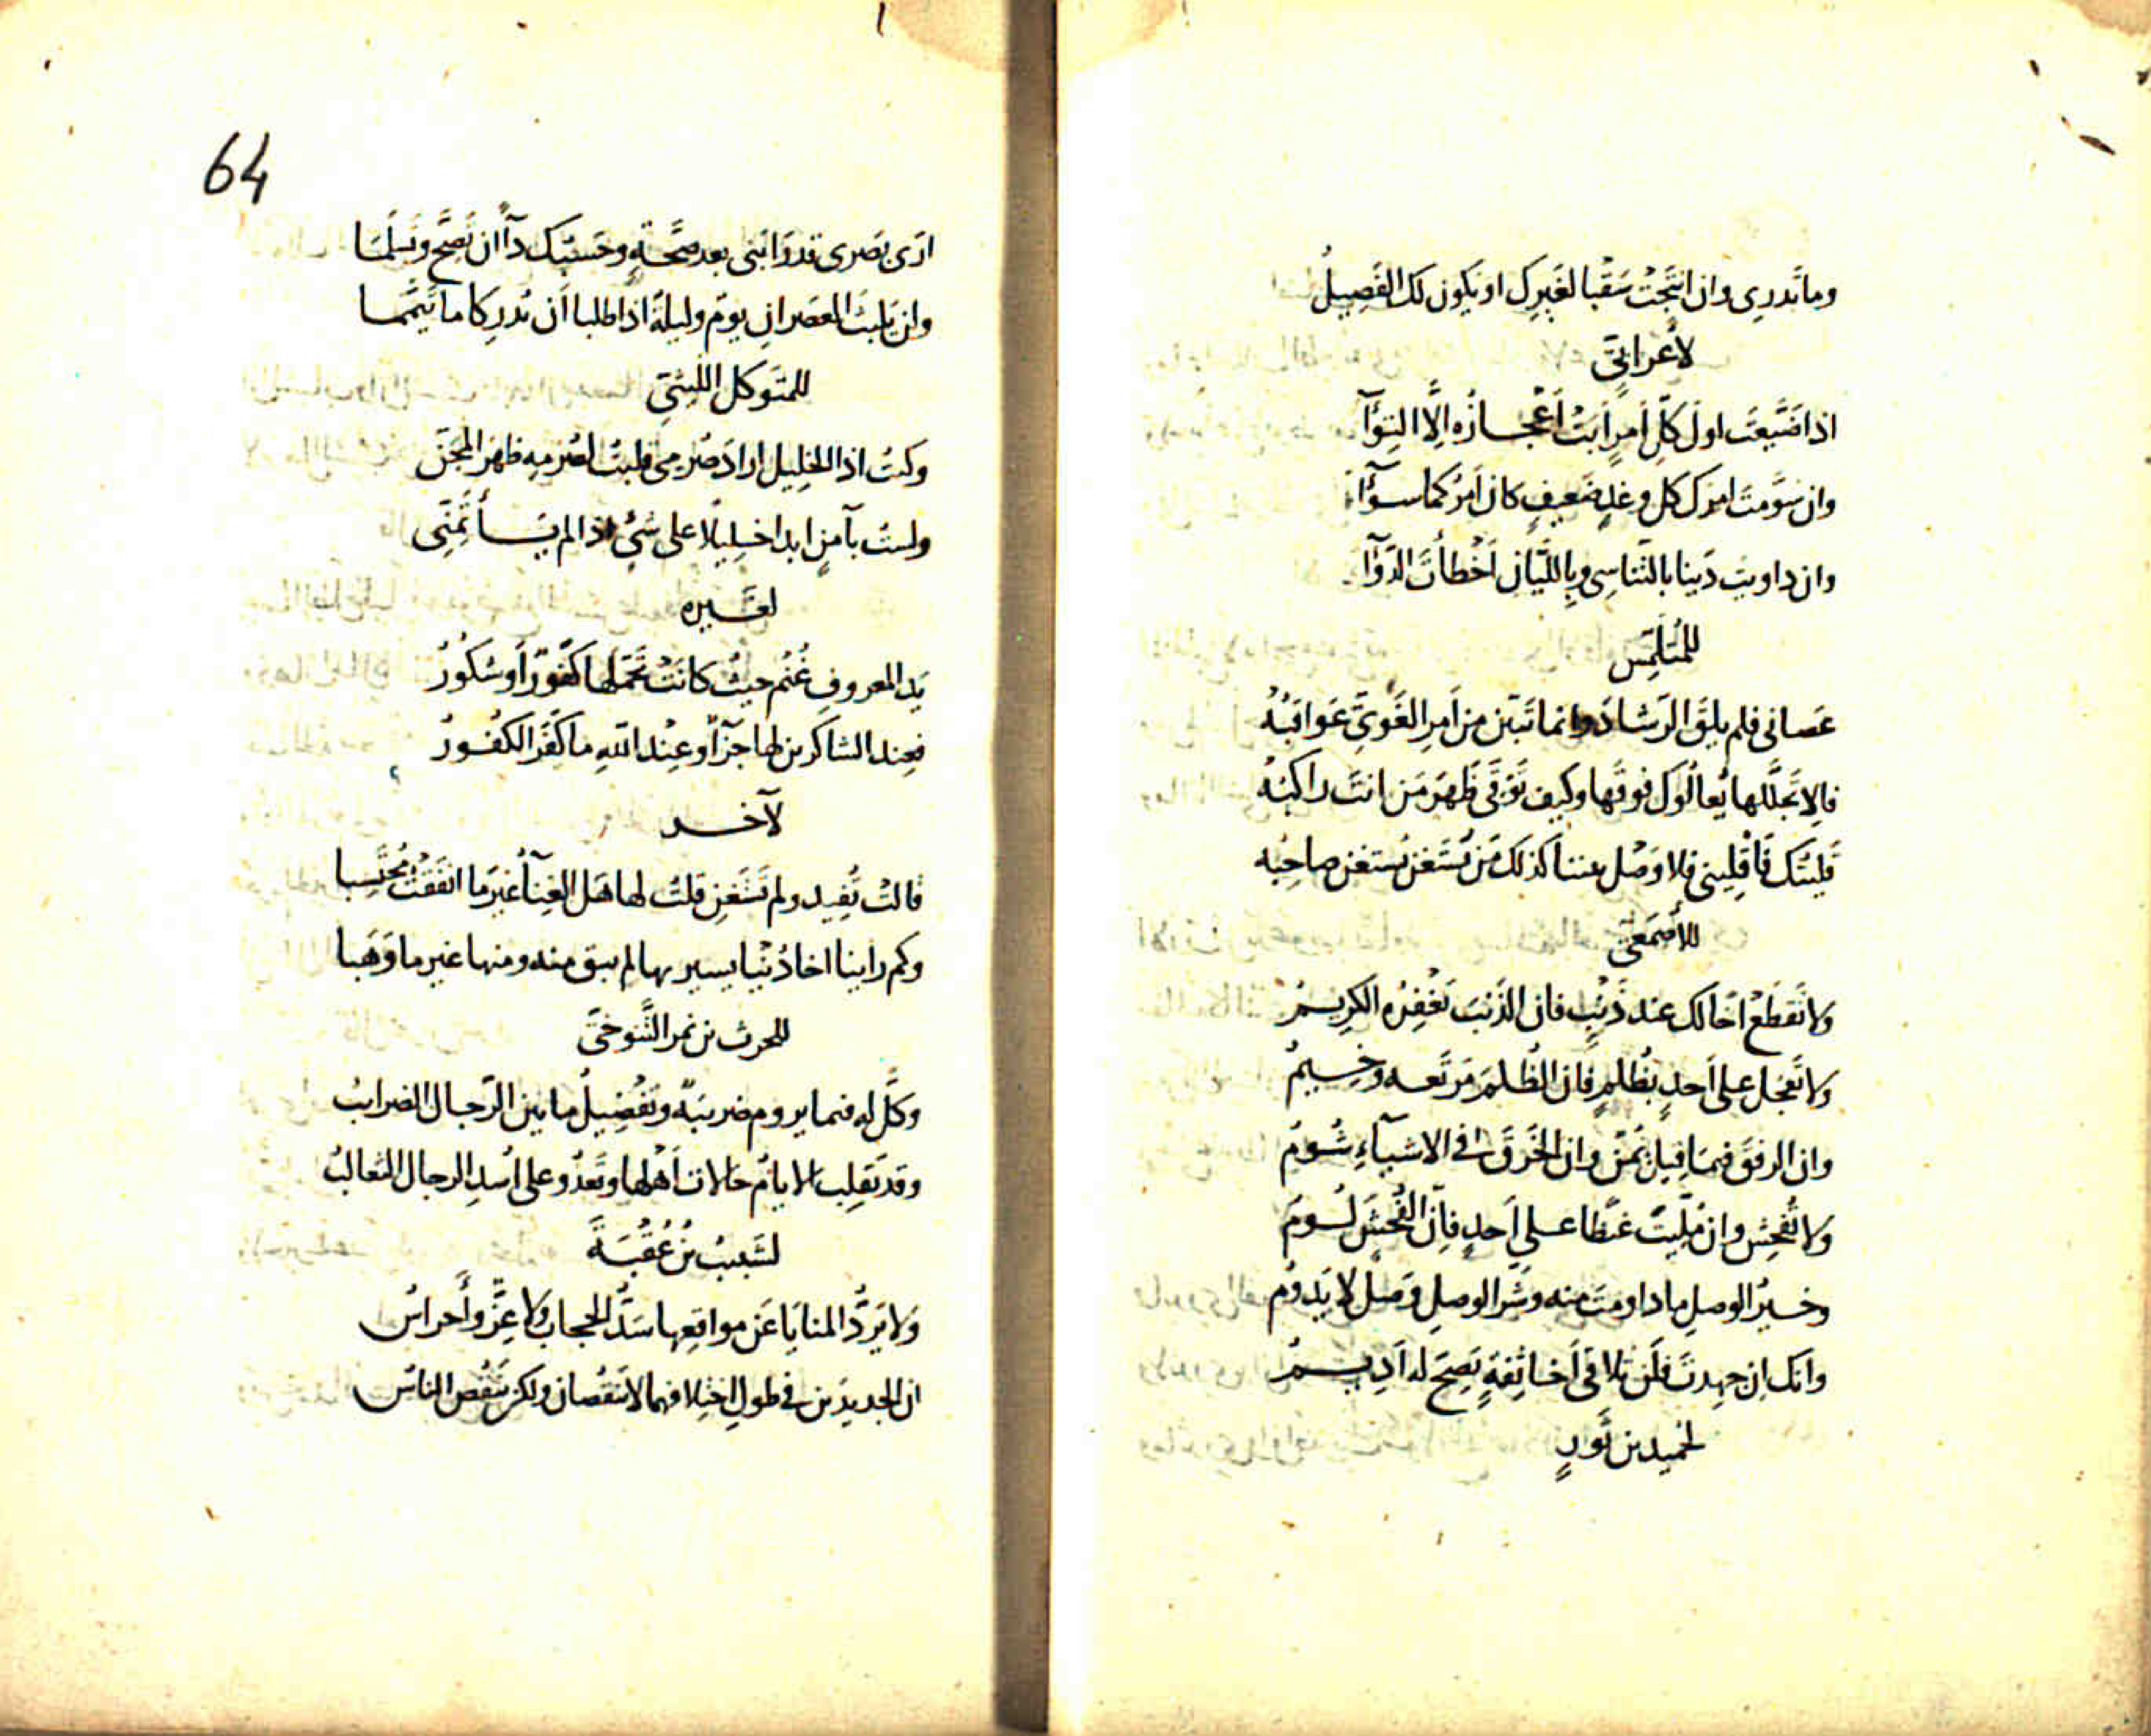 وما تَدرِى وان انتَجْتَ سَقْبا لغَيرِك او يكون لك الفَصِيلُ
لأعرابىّ
اذا ضَيَّعتَ اولَ كلِّ أمرٍ أبَتْ أعْجازُه إلَّا التِوَآ
وان سَوَّمتَ امرَك كل وغدٍ ضَعيفٍ كان أمرُكما سوآأ
وان داويتَ دَينا بالتَّناسِى وبِاللَّيّان أخْطأتَ الدَوَآأ
للمُتلَمِّس
عَصانى فلم يلقَ الرّشادَ وانما تَبيّن من أمرِ الغَوىِّ عَواقبُهُ
فالا تَجلَّلها يُعالُوك فوقَها وكيف تَوَقّى ظَهرَ مَن انتَ راكبُهْ
قَلَيتُك فَاقْلِينى فلا وَصْل بيننا كذلك مَن يَستَغنِ يُستغنَ صاحبُه
للأصمَعىّ
ولا تقطَعْ اخا لك عند ذَنْبٍ فان الذَنبَ يَغْفِرُه الكريمُ
ولا تَعجَل على أحدٍ بظُلمٍ فان الظُلمَ مَرتَعه وخيمُ
وان الرفقَ فيما قِيل يُمنٌ وان الخُرقَ فى الاشيآءِ شُومُ
ولا تُفحِش وان مُلِّيتَ غَيظا على أحدٍ فإن الفُحشَ لُومُ
وخيرُ الوصلِ ما داومتَ منه وشَرّ الوصلِ وَصلٌ لا يَدومُ
وانك إن جهدتَ فلَن تلاقى أخا ثِقةٍ يَصِحّ له أدِيمُ
لحُميد بن ثَورٍ
64
ارَى بَصرى قد رابَنى بعد صِحَّةٍ وحَسبُك دآأ ان تَصِحَّ وتَسلَما
وان يَلبث العَصرانِ يومٌ وليلةٌ اذا طلبا أن يُدرِكا ما تَيمَّما
للمتوكل الليثىّ
وكنتُ اذا الخليل ارادَ صَرمى قلبتُ لصَرمِه ظهرَ المِجَنّ
ولستُ بآمنٍ ابدا خليلًا على شىءٍ اذا لم يأتمنّى
لغيره
يَد المعروفِ غُنمٌ حيثُ كانَتْ تَحمّلها كَفُورٌ أو شَكُورُ
فعِند الشاكرين لها جزآأ وعِنْد اللّهِ ما كَفَر الكفُورُ
لآخر
قالت تُفِيد ولم تَستَغنِ قلتُ لها هَل الغِنآأ غيرَ ما انفَقتُ مُحتَسِبا
وكم راينا اخا دُنْيا يسير بها لم يبق منه ومنها غير ما وَهَبا
للحرث بن نمر التَّنوخىّ
وكلٌّ له فيما يروم ضريبَةٌ وتَفْضِيلُ ما بين الرّجال الضرايبُ
وقد تَقلِب الايامُ حالات أهْلِها وتَعدُو على أسْدِ الرجال الثعالبُ
لشَبيب بن عُقْبَةَ
ولا يَردُّ المنايا عَن مواقعِها سَدُّ الحجاب ولا عِزٌّ وأحراسُ
ان الجديدَين فى طولِ اختلافهما لا ينقُصان ولكن يَنقُص الناسُ